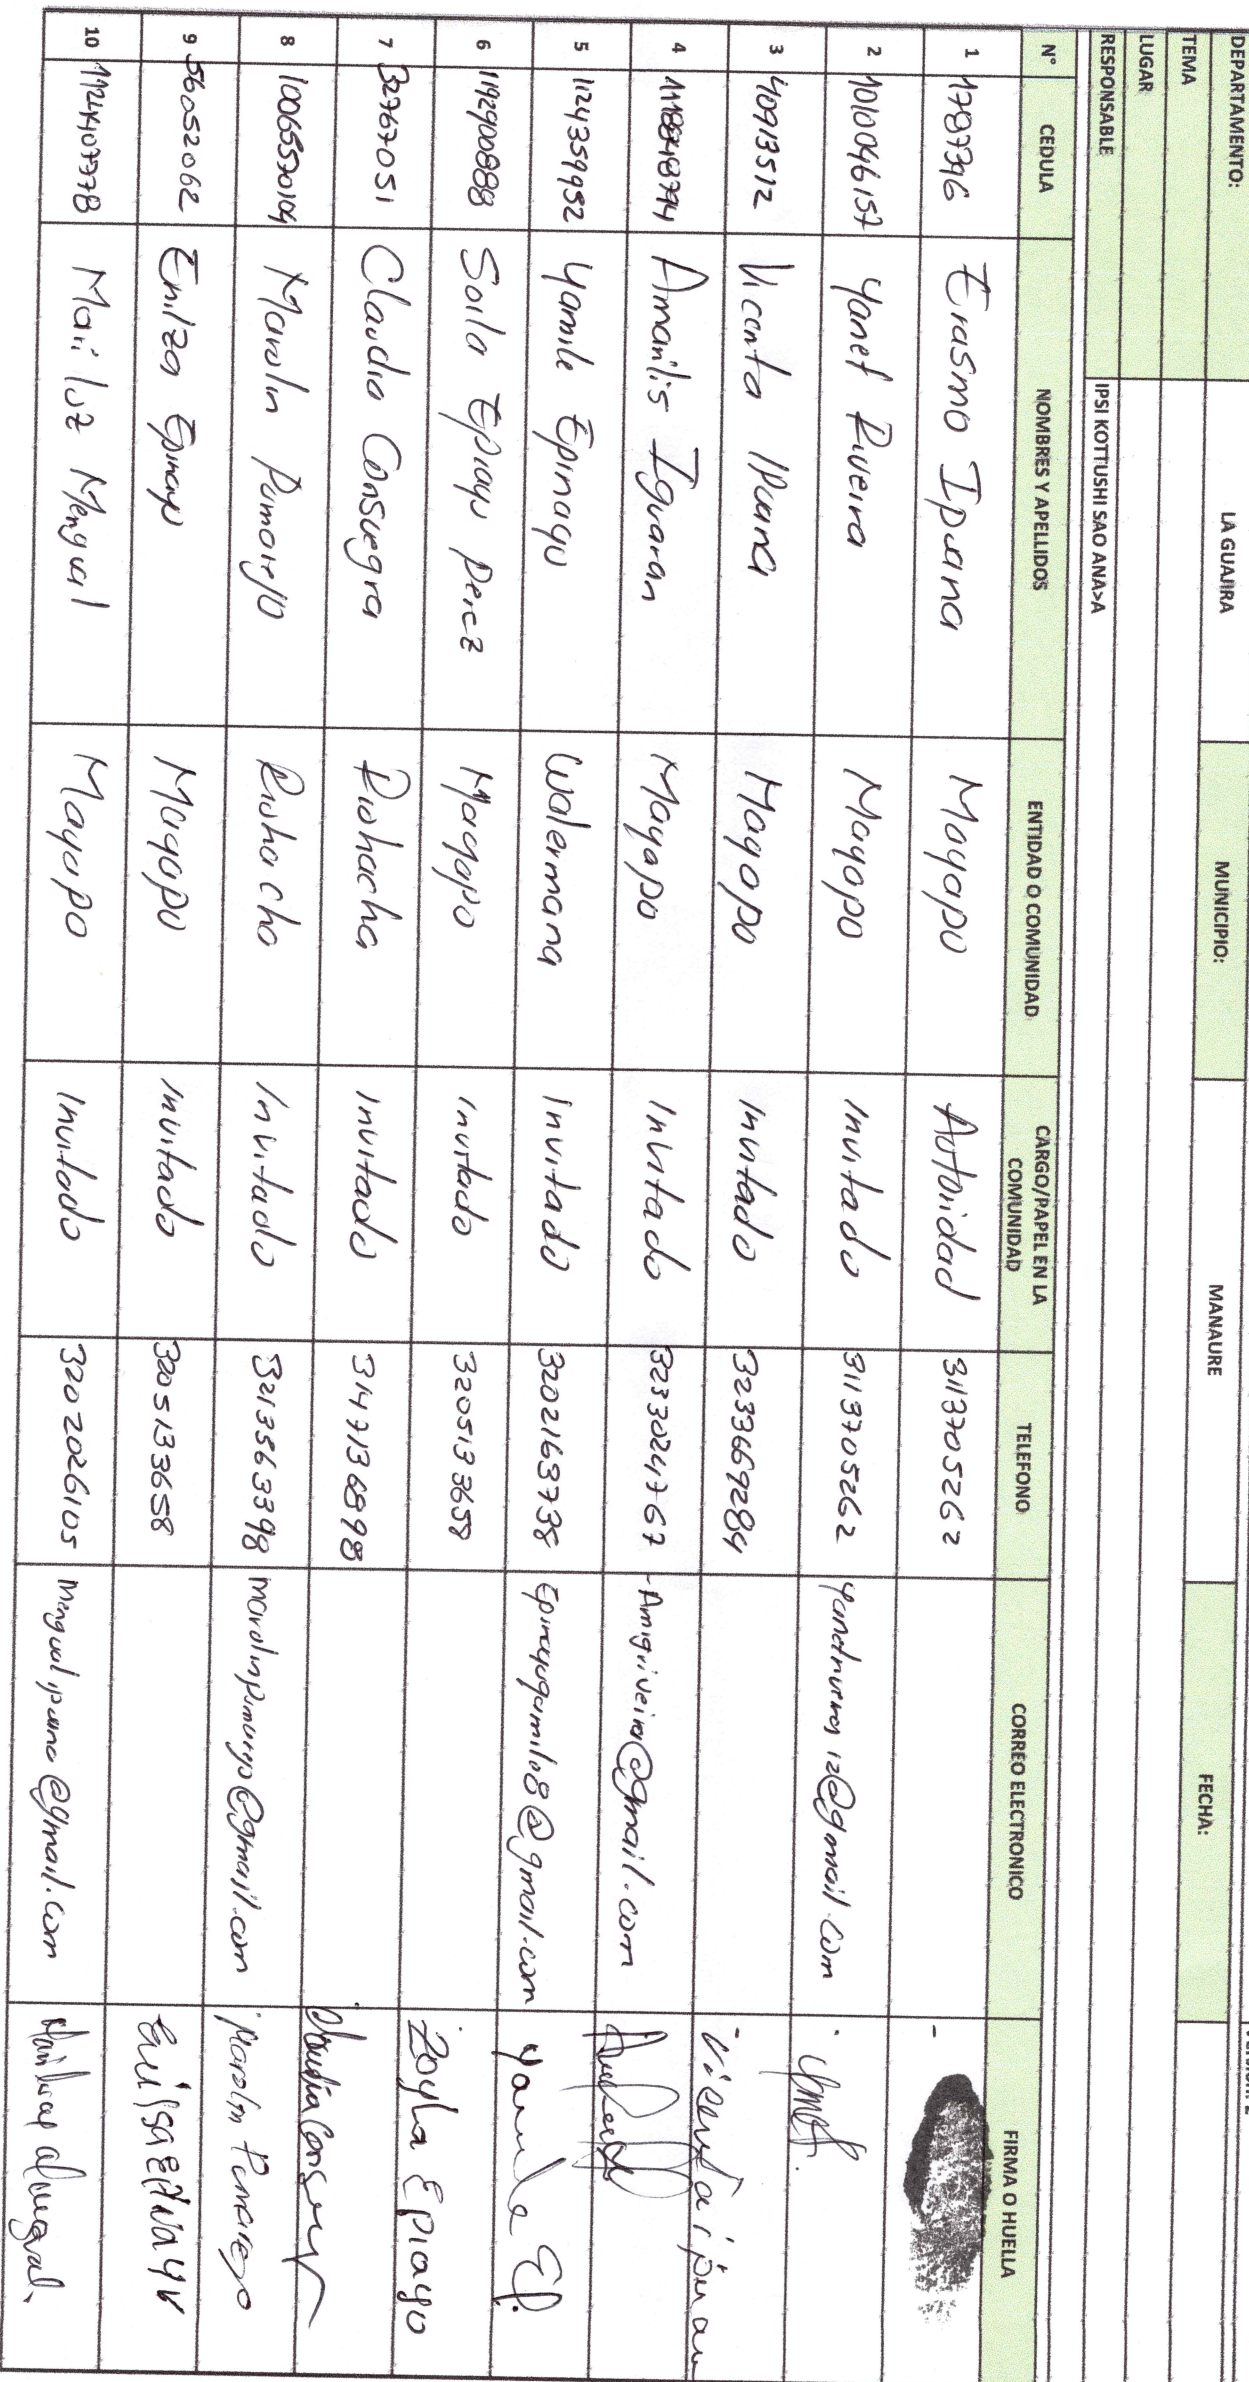 DEPARTAMENTO: LA GUAJIRA MUNICIPIO: MANAURE FECHA:
TEMA
LUGAR
RESPONSABLE IPSI KOTTUSHI SAO ANA>A
N° CEDULA NOMBRES Y APELLIDOS ENTIDAD O COMUNIDAD CARGO/PAPEL EN LA COMUNIDAD TELEFONO CORREO ELECTRONICO FIRMA O HUELLA
1 1787396 Erasmo Ipuana Mayapo Autoridad 3113705262
2 1010046157 Yanet Rivera Mayapo Invitado 3113705262
3 40913512 Vicenta Ipuana Mayapo Invitado 3233669284 Visenta ipuan
4 Amarilis Iguaran Mayapo Invitado 3233024767 Amigriveira@gmail.com
5 1124359952 Yamile Epinayu Walermana Invitado 3202163738 Yamile Ep.
6 1192900888 Soila Epiayu Perez Mayapo Invitado 3205133658 Zoyla Epiayo
7 32767051 Claudia Consuegra Riohacha Invitado 3147136898
8 1006570104 Marolin Pumarejo Riohacha Invitado 3213563398 Marolin Pumarejo
9 56052062 Enilza Epinayu Mayapo Invitado 3205133658
10 Mari luz Mengual Mayapo Invitado 3202026105 Mengualipuana@gmail.com